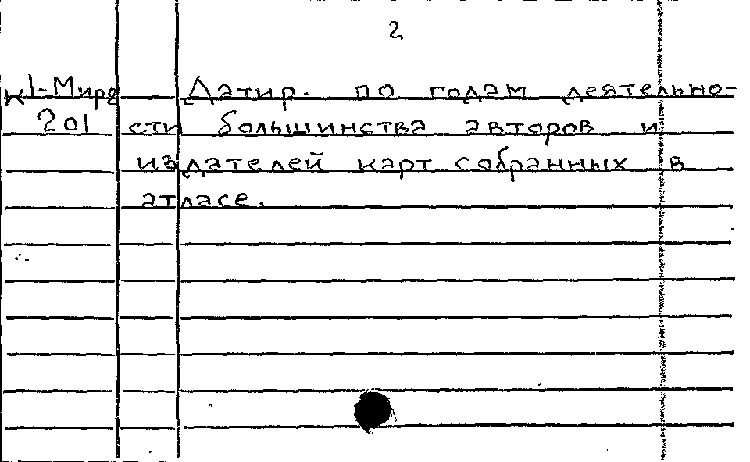 2
к1-Мира Датир. по годам деятельно-
201 сти большинства авторов и
издателей карт собранных в
атласе.